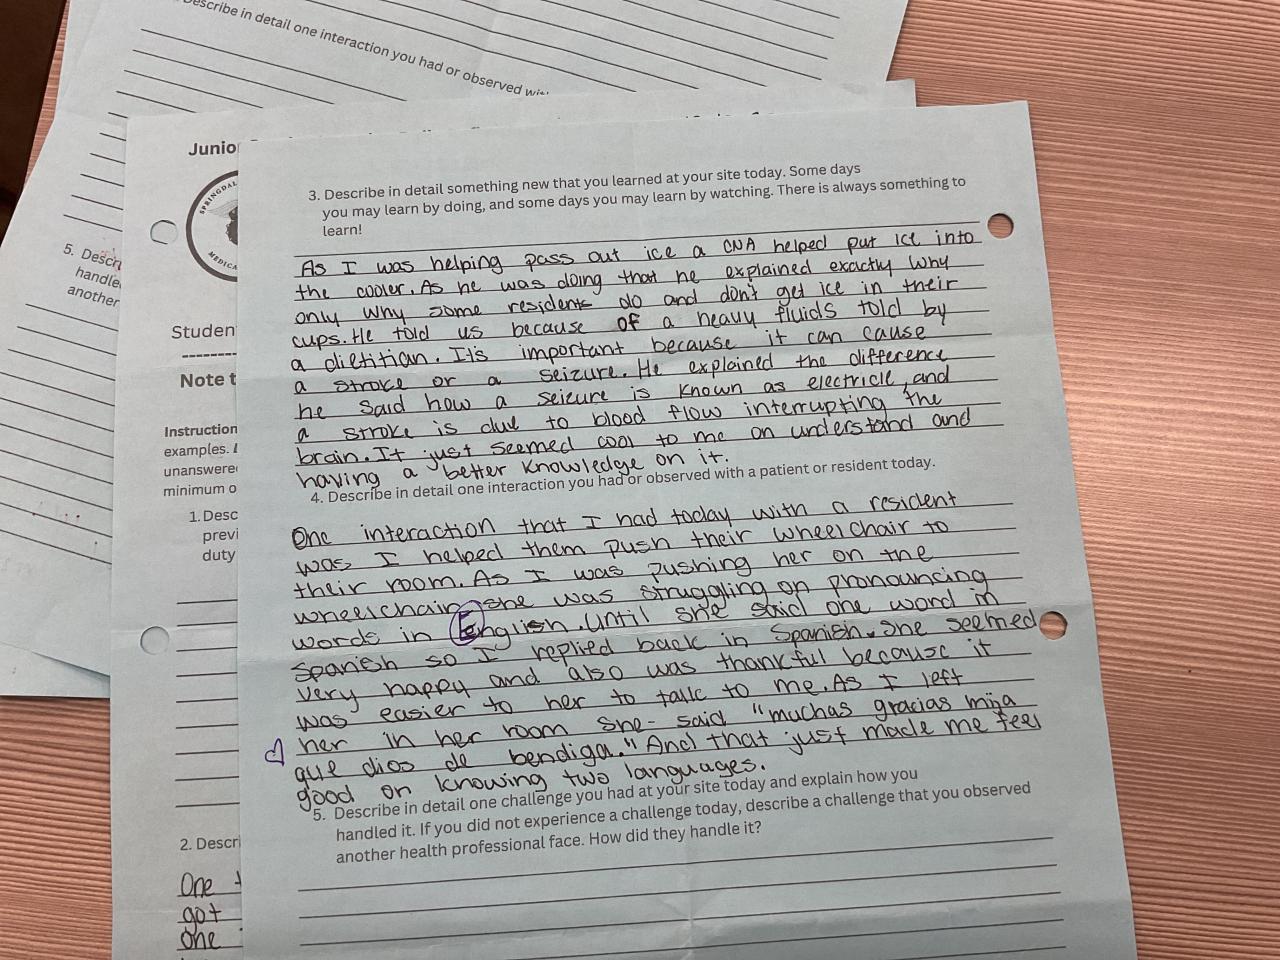 Describe in detail one interaction you had or observed with
Junio
SPRINGDAL
MEDICA
5. Descr
handle
another
Studen
Note t
Instruction
examples.
unanswere
minimum o
1. Desc
previ
duty
2. Descri
One
got
one
3. Describe in detail something new that you learned at your site today. Some days
you may learn by doing, and some days you may learn by watching. There is always something to
learn!
As I was helping pass out ice a CNA helped put ice into
the cooler. As he was doing that he explained exactly why
only why some residents do and don't get ice in their
cups. He told us because of a heavy fluids told by
a dietitian. It's important because it can cause
a stroke or a seizure. He explained the difference
he said how a seizure is known as electricle, and
a stroke is due to blood flow interrupting the
brain. It just seemed cool to me on understand and
having a better knowledge on it.
4. Describe in detail one interaction you had or observed with a patient or resident today.
One interaction that I had today with a resident
was, I helped them push their wheelchair to
their room. As I was pushing her on the
wheelchair she was struggling on pronouncing
words in English. Until she said one word in
Spanish so I replied back in Spanish. She seemed
very happy and also was thankful because it
was easier to her to talk to me. As I left
her in her room she said "muchas gracias mija
que dios de bendiga." And that just made me feel
good on knowing two languages.
5. Describe in detail one challenge you had at your site today and explain how you
handled it. If you did not experience a challenge today, describe a challenge that you observed
another health professional face. How did they handle it?